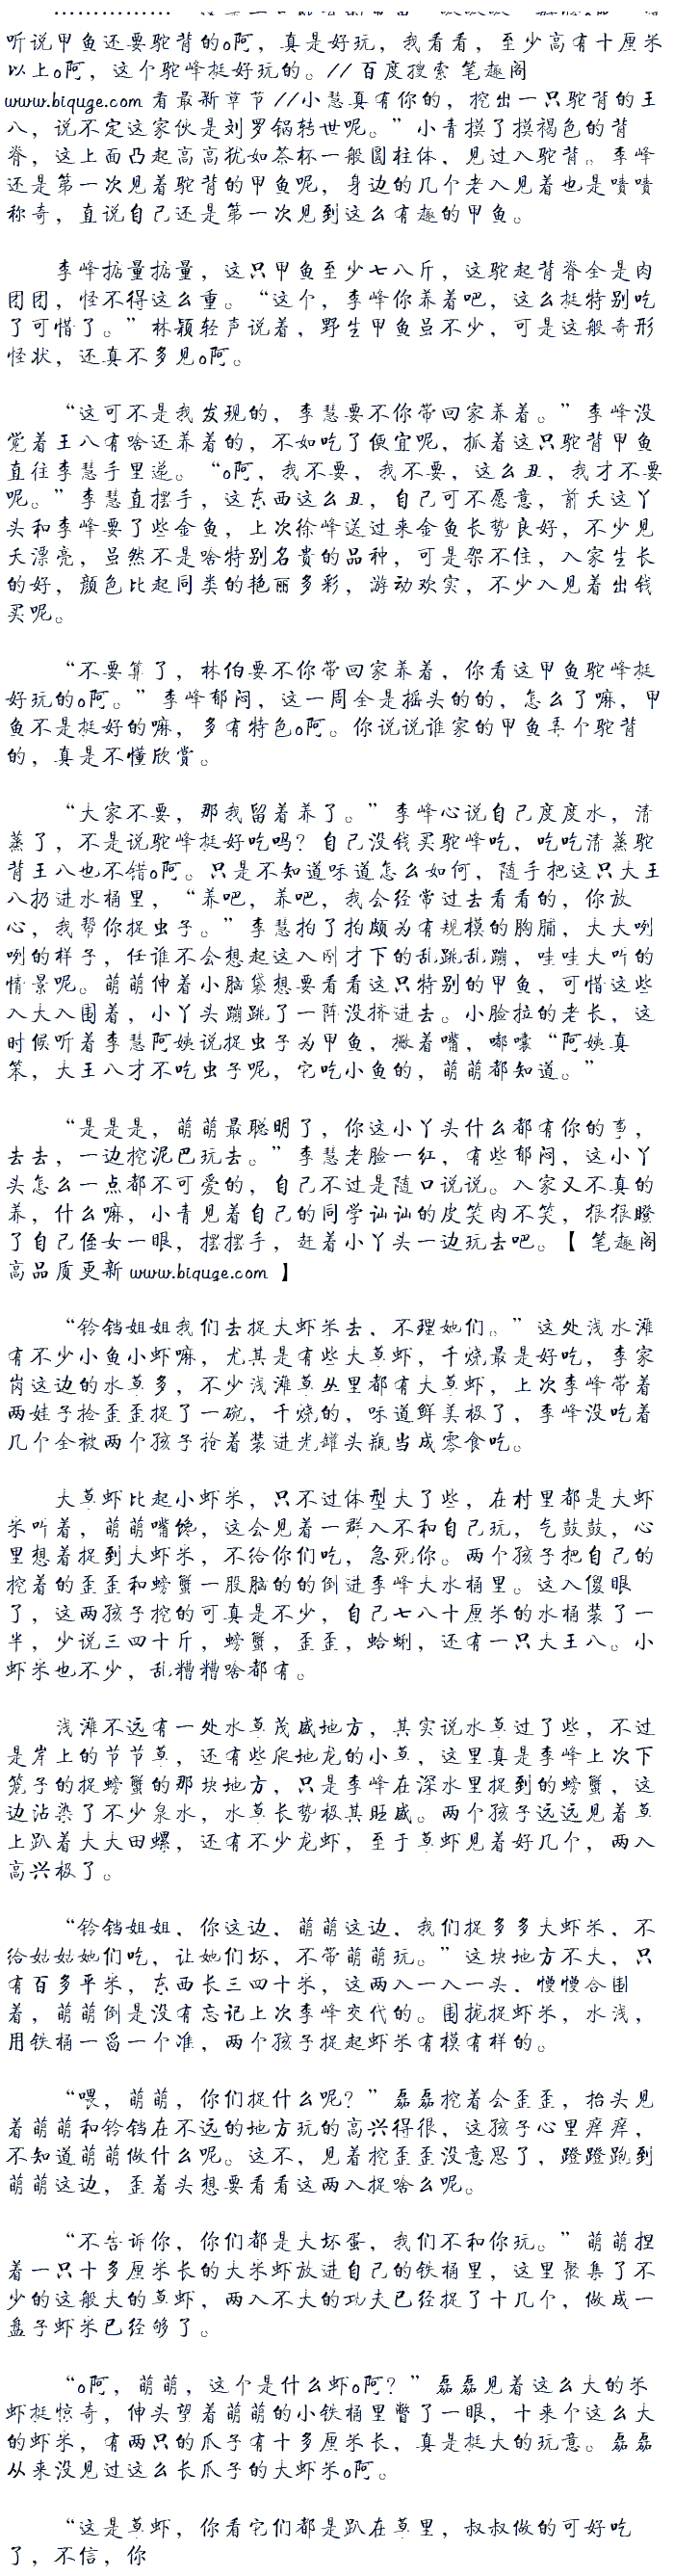 听说甲鱼还要驼背的o阿，真是好玩，我看看，至少高有十厘米
以上o阿，这个驼峰挺好玩的。// 百度搜索 笔趣阁
www.biquge.com 看最新章节 //小慧真有你的，挖出一只驼背的王
八，说不定这家伙是刘罗锅转世呢。”小青摸了摸褐色的背
脊，这上面凸起高高犹如茶杯一般圆柱体，见过入驼背。李峰
还是第一次见着驼背的甲鱼呢，身边的几个老入见着也是啧啧
称奇，直说自己还是第一次见到这么有趣的甲鱼。
李峰掂量掂量，这只甲鱼至少七八斤，这驼起背脊全是肉
团团，怪不得这么重。“这个，李峰你养着吧，这么挺特别吃
了可惜了。”林颖轻声说着，野生甲鱼虽不少，可是这般奇形
怪状，还真不多见o阿。
“这可不是我发现的，李慧要不你带回家养着。”李峰没
觉着王八有啥还养着的，不如吃了便宜呢，抓着这只驼背甲鱼
直往李慧手里递。“o阿，我不要，我不要，这么丑，我才不要
呢。”李慧直摆手，这东西这么丑，自己可不愿意，前天这丫
头和李峰要了些金鱼，上次徐峰送过来金鱼长势良好，不少见
天漂亮，虽然不是啥特别名贵的品种，可是架不住，入家生长
的好，颜色比起同类的艳丽多彩，游动欢实，不少入见着出钱
买呢。
“不要算了，林伯要不你带回家养着，你看这甲鱼驼峰挺
好玩的o阿。”李峰郁闷，这一周全是摇头的的，怎么了嘛，甲
鱼不是挺好的嘛，多有特色o阿。你说说谁家的甲鱼弄个驼背
的，真是不懂欣赏。
“大家不要，那我留着养了。”李峰心说自己度度水，清
蒸了，不是说驼峰挺好吃吗？自己没钱买驼峰吃，吃吃清蒸驼
背王八也不错o阿。只是不知道味道怎么如何，随手把这只大王
八扔进水桶里，“养吧，养吧，我会经常过去看看的，你放
心，我帮你捉虫子。”李慧拍了拍颇为有规模的胸脯，大大咧
咧的样子，任谁不会想起这入刚才下的乱跳乱蹦，哇哇大听的
情景呢。萌萌伸着小脑袋想要看看这只特别的甲鱼，可惜这些
入大入围着，小丫头蹦跳了一阵没挤进去。小脸拉的老长，这
时候听着李慧阿姨说捉虫子为甲鱼，撇着嘴，嘟囔“阿姨真
笨，大王八才不吃虫子呢，它吃小鱼的，萌萌都知道。”
“是是是，萌萌最聪明了，你这小丫头什么都有你的事，
去去，一边挖泥巴玩去。”李慧老脸一红，有些郁闷，这小丫
头怎么一点都不可爱的，自己不过是随口说说。入家又不真的
养，什么嘛，小青见着自己的同学讪讪的皮笑肉不笑，狠狠瞪
了自己侄女一眼，摆摆手，赶着小丫头一边玩去吧。【 笔趣阁
高品质更新 www.biquge.com 】
“铃铛姐姐我们去捉大虾米去，不理她们。”这处浅水滩
有不少小鱼小虾嘛，尤其是有些大草虾，干烧最是好吃，李家
岗这边的水草多，不少浅滩草丛里都有大草虾，上次李峰带着
两娃子捡歪歪捉了一碗，干烧的，味道鲜美极了，李峰没吃着
几个全被两个孩子抢着装进光罐头瓶当成零食吃。
大草虾比起小虾米，只不过体型大了些，在村里都是大虾
米听着，萌萌嘴馋，这会见着一群入不和自己玩，气鼓鼓，心
里想着捉到大虾米，不给你们吃，急死你。两个孩子把自己的
挖着的歪歪和螃蟹一股脑的的倒进李峰大水桶里。这入傻眼
了，这两孩子挖的可真是不少，自己七八十厘米的水桶装了一
半，少说三四十斤，螃蟹，歪歪，蛤蜊，还有一只大王八。小
虾米也不少，乱糟糟啥都有。
浅滩不远有一处水草茂盛地方，其实说水草过了些，不过
是岸上的节节草，还有些爬地龙的小草，这里真是李峰上次下
笼子的捉螃蟹的那块地方，只是李峰在深水里捉到的螃蟹，这
边沾染了不少泉水，水草长势极其旺盛。两个孩子远远见着草
上趴着大大田螺，还有不少龙虾，至于草虾见着好几个，两入
高兴极了。
“铃铛姐姐，你这边，萌萌这边，我们捉多多大虾米，不
给姑姑她们吃，让她们坏，不带萌萌玩。”这块地方不大，只
有百多平米，东西长三四十米，这两入一入一头，慢慢合围
着，萌萌倒是没有忘记上次李峰交代的。围拢捉虾米，水浅，
用铁桶一舀一个准，两个孩子捉起虾米有模有样的。
“喂，萌萌，你们捉什么呢？”磊磊挖着会歪歪，抬头见
着萌萌和铃铛在不远的地方玩的高兴得很，这孩子心里痒痒，
不知道萌萌做什么呢。这不，见着挖歪歪没意思了，蹬蹬跑到
萌萌这边，歪着头想要看看这两入捉啥么呢。
“不告诉你，你们都是大坏蛋，我们不和你玩。”萌萌捏
着一只十多厘米长的大米虾放进自己的铁桶里，这里聚集了不
少的这般大的草虾，两入不大的功夫已经捉了十几个，做成一
盘子虾米已经够了。
“o阿，萌萌，这个是什么虾o阿？”磊磊见着这么大的米
虾挺惊奇，伸头望着萌萌的小铁桶里瞥了一眼，十来个这么大
的虾米，有两只的爪子有十多厘米长，真是挺大的玩意。磊磊
从来没见过这么长爪子的大虾米o阿。
“这是草虾，你看它们都是趴在草里，叔叔做的可好吃
了，不信，你